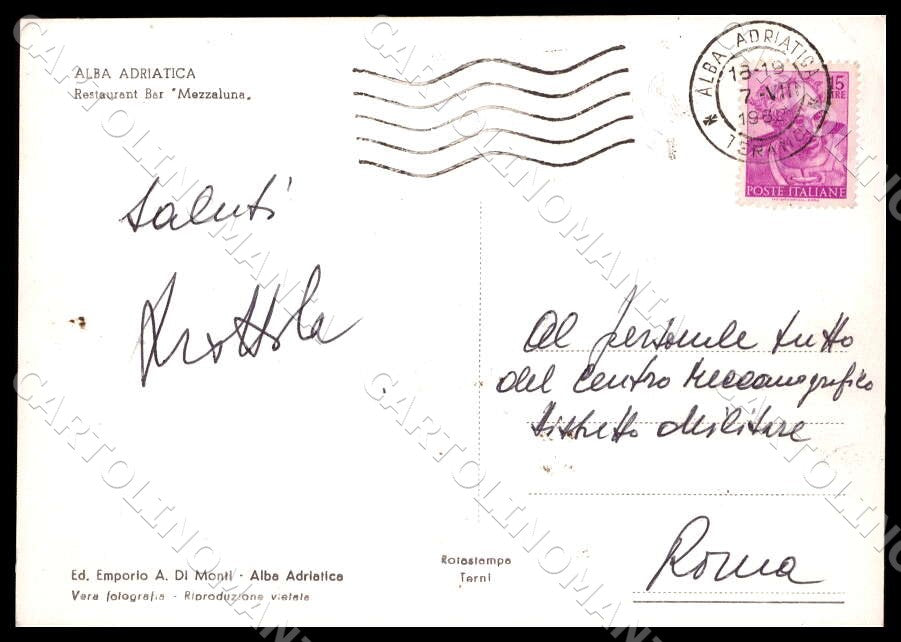 ALBA ADRIATICA
Restaurant Bar "Mezzaluna"
ALBA ADRIATICA
18-19
7-VIII
TERAMO
15
LIRE
POSTE ITALIANE
saluti
Al personale tutto
del Centro Meccanografico
Distretto Militare
Roma
Ed. Emporio A. Di Monti - Alba Adriatica
Vera fotografia - Riproduzione vietata
Rotostampa
Terni
CARTOLINOMANIA